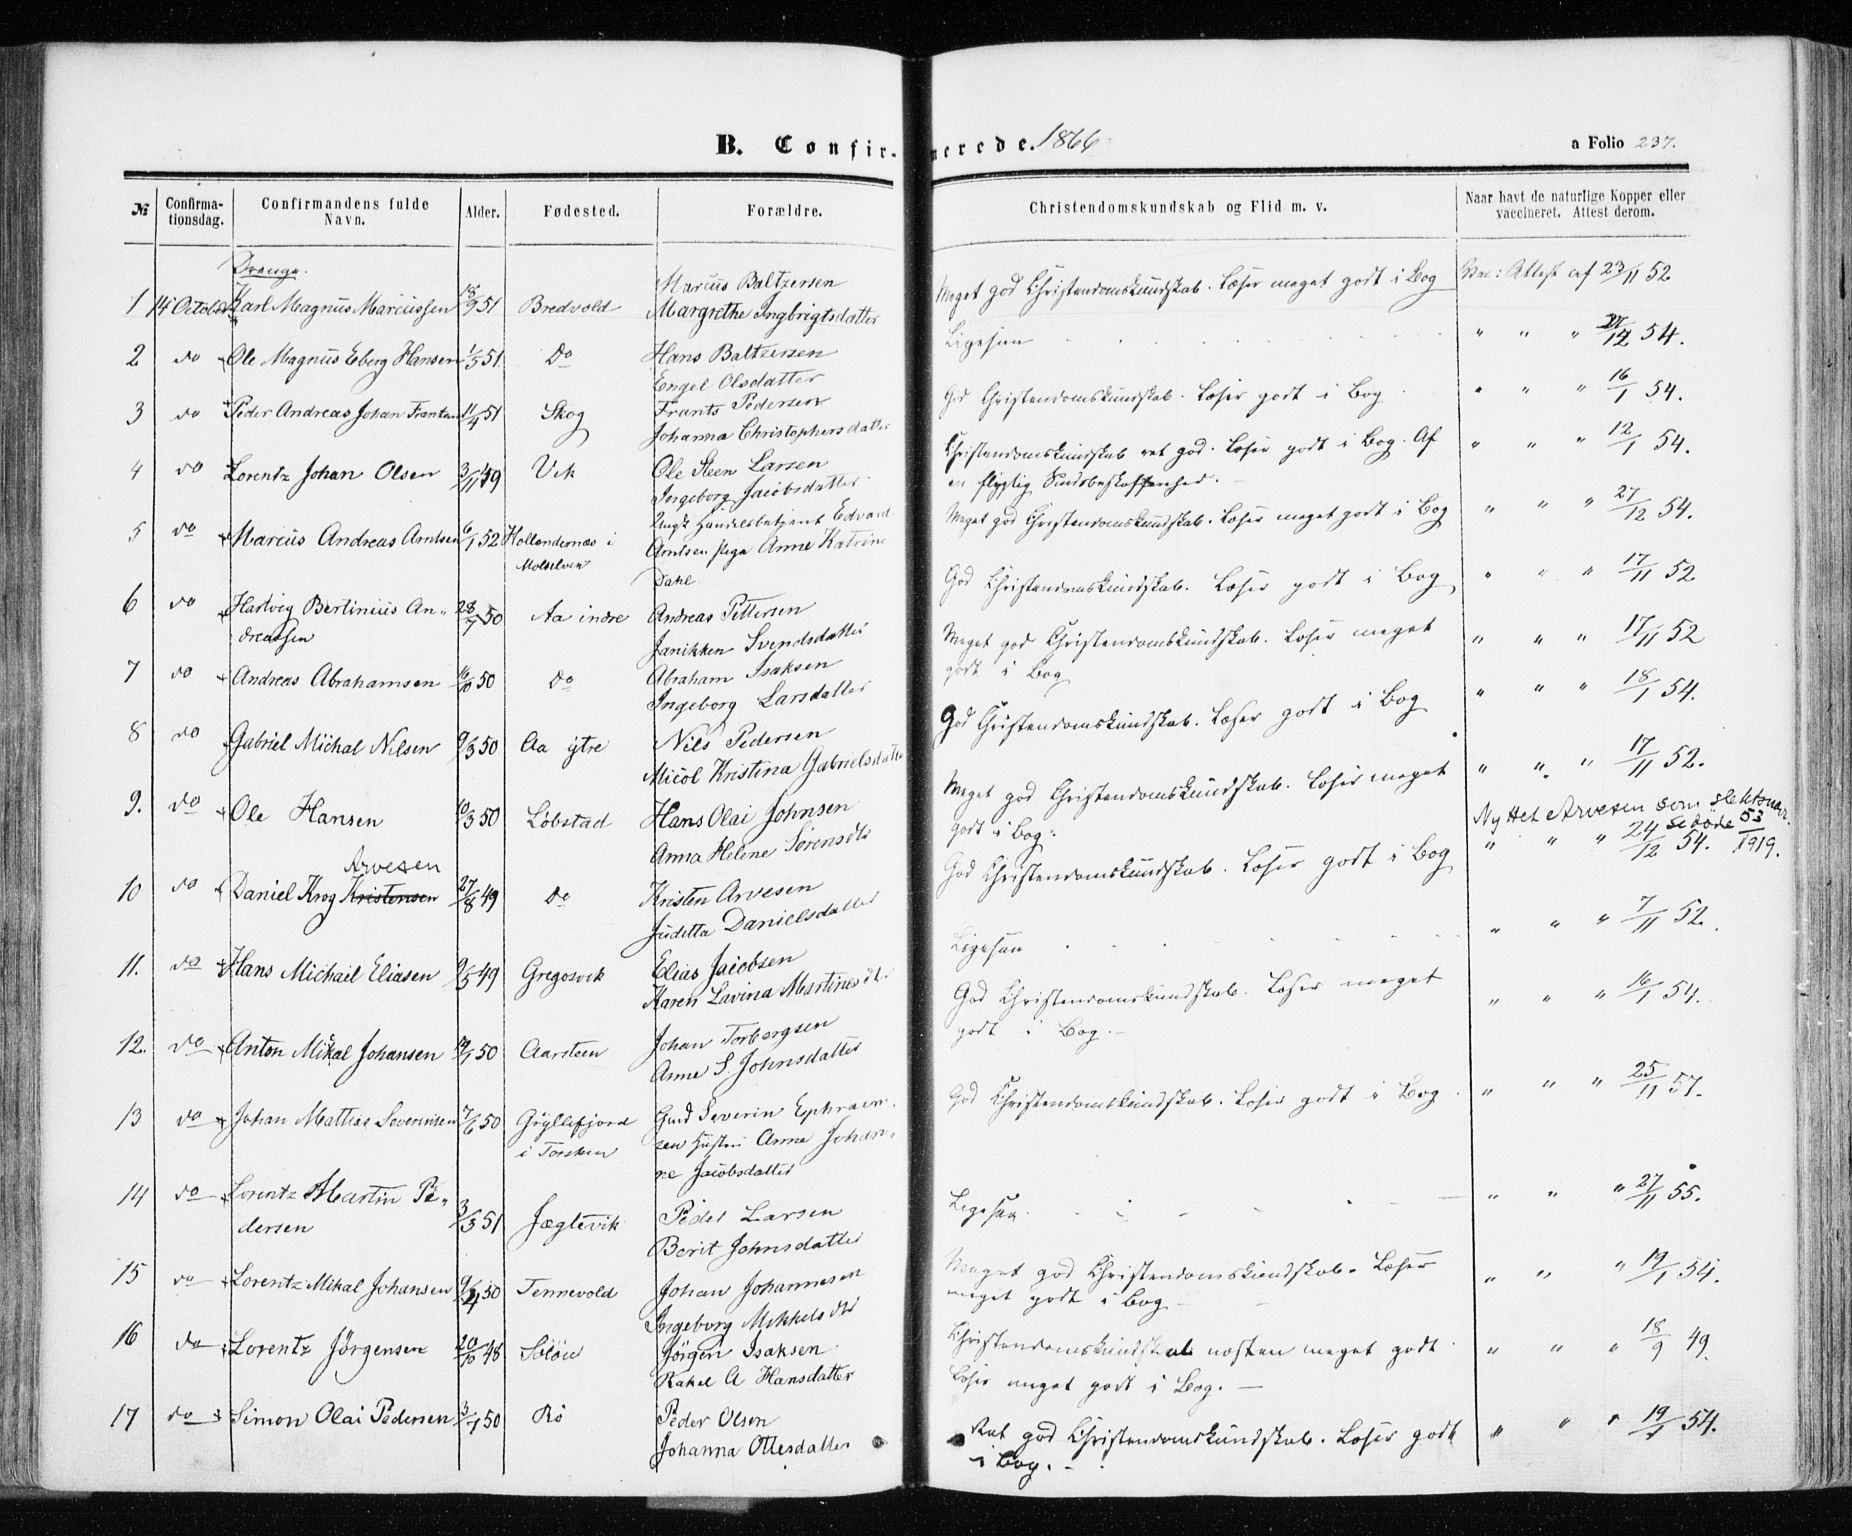 B. Confir- merede. 1866
a Folio 237.
№ Confirma-tionsdag. Confirmandens fulde Navn. Alder. Fødested. Forældre. Christendomskundskab og Flid m. v. Naar havt de naturlige Kopper eller vaccineret. Attest derom.
Drenge.
1 14 October Karl Magnus Marcussen 18/9 51 Bredvold Marcus Baltzersen Meget god Christendomskundskab. Læser meget godt i Bog Vac: Attest af 23/11 52
Margrethe Ingbrigtsdatter
2 do Ole Magnus Eberg Hansen 1/5 51 Do Hans Baltzersen Ligesaa " " " 54.
Engel Olsdatter
3 do Peder Andreas Johan Frantsen 11/4 51 Skog Frants Pedersen God Christendomskundskab. Læser godt i Bog " " " 16/1 54.
Johanna Christophersdatter
4 do Lorentz Johan Olsen 3/11 49 Vik Ole Steen Larsen Christendomskundskab ret god. Læser godt i Bog. Af " " " 12/1 54.
Ingeborg Jacobsdatter en flygtig Sindsbeskaffenhed.
5 do Marcus Andreas Arntsen 6/1 52 Hollendernæs i Ungk Handelsbetjent Edvard Meget god Christendomskundskab. Læser meget godt i Bog " " " 27/12 54.
Molselven Arntsen Pige Anne Katrine
Dahl
6 do Hartvig Bertinius An- 28/7 50 Aa indre Andreas Pettersen God Christendomskundskab. Læser godt i Bog " " " 17/11 52
dreassen Janikken Svendsdatter
7 do Andreas Abrahamsen 16/10 50 Do Abraham Isaksen Meget god Christendomskundskab. Læser meget " " " 17/11 52
Ingeborg Larsdatter godt i Bog
8 do Gabriel Michal Nilsen 9/3 50 Aa ytre Nils Pedersen God Christendomskundskab. Læser godt i Bog " " " 18/1 54.
Micol Kristina Gabrielsdatter
9. do Ole Hansen 10/3 50 Løbstad Hans Olai Johnsen Meget god Christendomskundskab. Læser meget " " " 17/11 52.
Anna Helene Sørensdtr godt i Bog.
Nyttet Arvesen som slektsnavn.
se døde 53/1919.
10 do Daniel Krog Kristensen Arvesen 27/8 49 Do Kristen Arvesen God Christendomskundskab. Læser godt i Bog " " " 24/12 54.
Juditta Danielsdatter
11. do Hans Michael Eliasen 9/5 49 Gregosvik Elias Jacobsen Ligesaa " " " 7/11 52.
Karen Lavina Martinesdtr
12. do Anton Mikal Johansen 50 Aarsteen Johan Torbergsen God Christendomskundskab. Læser meget " " " 16/1 54.
Anne S. Johnsdatter godt i Bog.
13 do Johan Mathias Severinsen 7/6 50 Gryllefjord Gmd Severin Ephraem- God Christendomskundskab. Læser godt i Bog " " " 25/11 57.
i Torsken sen Hustru Anne Johan-
ne Jacobsdatter
14 do Lorentz Martin Pe- 3/3 51 Jægtevik Peder Larsen Ligesaa " " " 27/11 55.
dersen Berit Johnsdatter
15 do Lorentz Mikal Johansen 50 Tennevold Johan Johannesen Meget god Christendomskundskab. Læser " " " 19/1 54.
Ingeborg Mikkelsdtr meget godt i Bog
16 do Lorentz Jørgensen 20/10 48 Jørgen Isaksen Christendomskundskab næsten meget godt. " " " 18/9 49.
Rakel A Hansdatter Læser meget godt i Bog.
17 do Simon Olai Pedersen 3/1 50 Rø Peder Olsen Ret god Christendomskundskab. Læser godt " " " 19/1 54.
Johanna Ottesdatter i Bog.